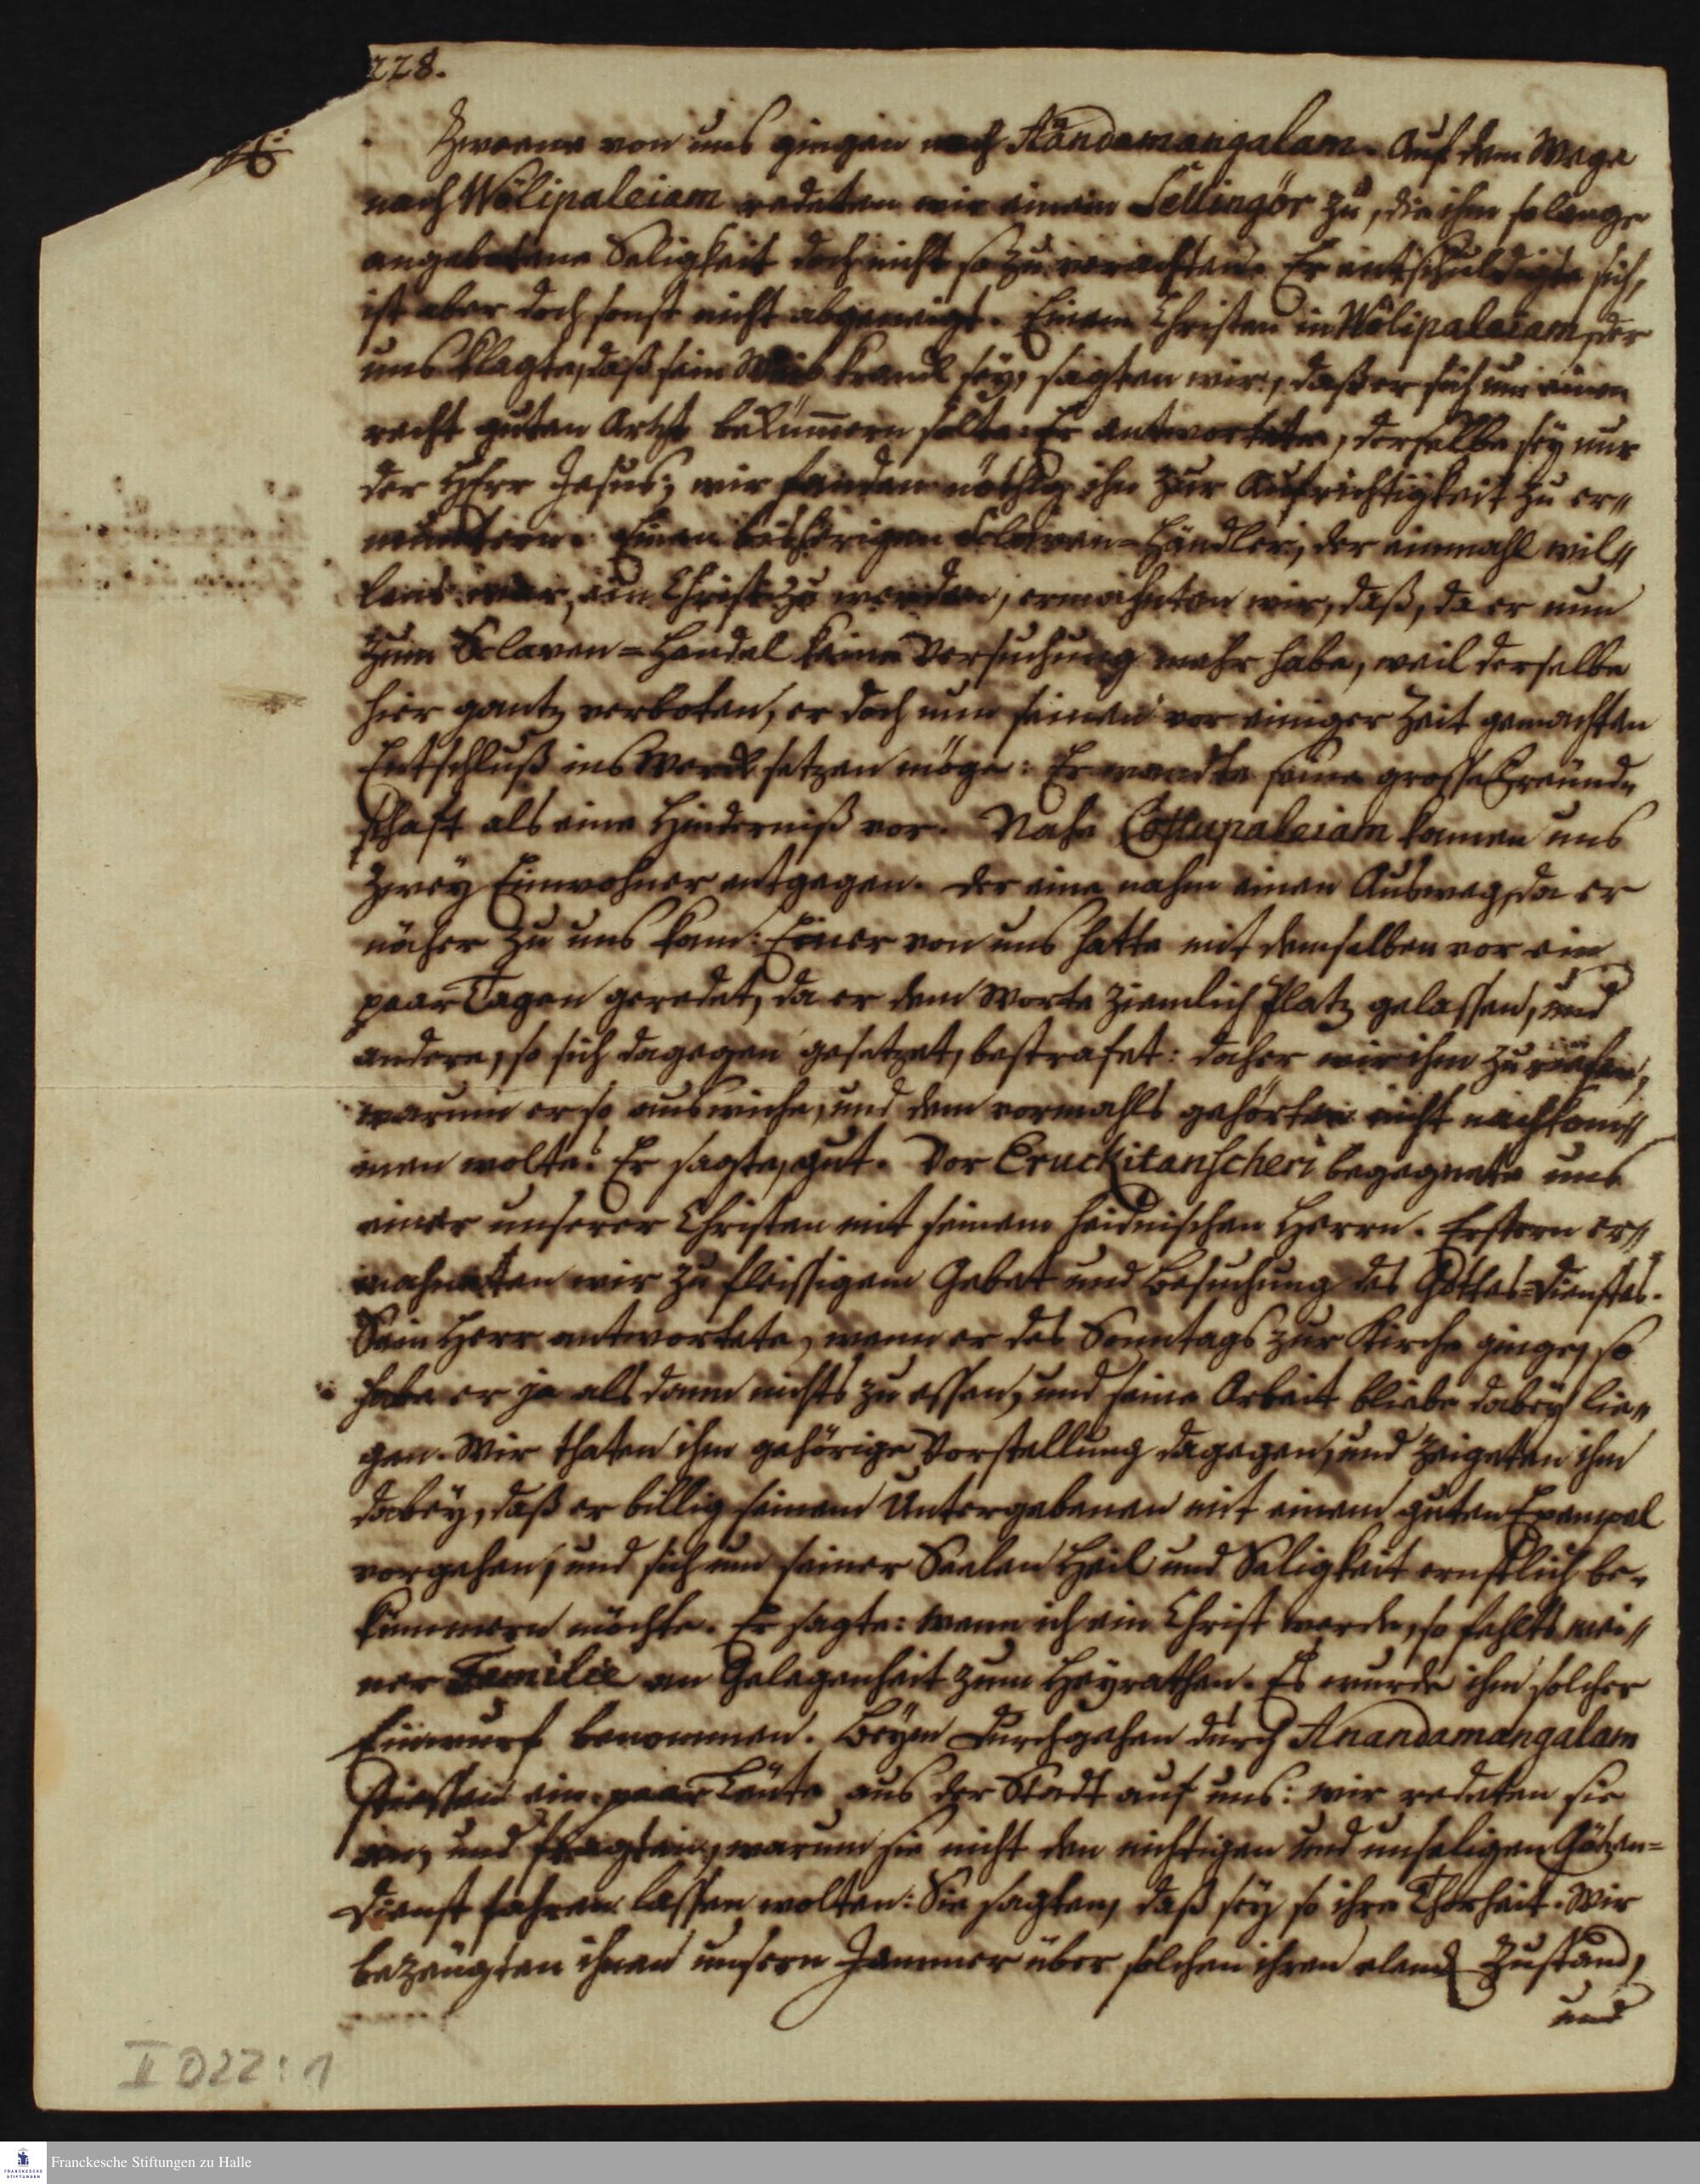 228.
Zweene von uns gingen nach Anandamangalam. Auf dem Wege
nach Wölipaleiam redeten wir einem Sellingör zu, die ihm so lange
angebotene Seligkeit doch nicht so zu verachten. Er entschuldigte sich,
ist aber doch sonst nicht abgeneigt. Einem Christen in Wölipaleiam, der
uns klagte, daß sein Weib kranck sey, sagten wir, daß er sich um einen
recht guten Artzt bekümmern solte: Er antwortete, derselbe sey nur
der HErr Jesus; wir fanden nöthig ihn zur Aufrichtigkeit zu er„
muntern. Einen bisherigen Sclaven-Händler, der einmahl wil„
lens war, ein Christ zu werden, ermahnten wir, daß, da er nun
zum Sclaven-Handel keine Versuchung mehr habe, weil derselbe
hier gantz verboten, er doch nun seinen vor einiger Zeit gemachten
Entschluß ins Werck setzen möge: Er wandte seine grosse Freund„
schaft als eine Hinderniß vor. Nahe Cottupaleiam kamen uns
zwey Einwohner entgegen. Der eine nahm einen Ausweg, da er
näher zu uns kam: Einer von uns hatte mit demselben vor ein
paar Tagen geredet, da er dem Worte ziemlich Platz gelassen, und
andere, so sich dagegen gesetzet, bestrafet: daher wir ihm zurieffen,
warum er so auswiche, und dem vormahls gehörten nicht nachkom„
men wolte? Er sagte, gut. Vor Eruckitanscheri begegnete uns
einer unserer Christen mit seinem heidnischen Herrn. Erstern er„
mahneten wir zu fleissigem Gebet und Besuchung des Gottes-Dienstes.
Sein Herr antwortete, wenn er des Sonntags zur Kirche ginge, so
habe er ja alsdann nichts zu essen, und seine Arbeit bliebe dabey lie„
gen. Wir thaten ihm gehörige Vorstellung dagegen, und zeigeten ihm
dabey, daß er billig seinem Untergebenen mit einem guten Exempel
vorgehen, und sich um seiner Seelen Heil und Seligkeit ernstlich be„
kümmern möchte. Er sagte: wenn ich ein Christ werde, so fehlts mei„
ner Familie an Gelegenheit zum Heyrathen. Es wurde ihm solcher
Einwurf benommen. Beym Durchgehen durch Anandamangalam
stiessen ein paar Leute aus der Stadt auf uns: wir redeten sie
an, und fragten, warum sie nicht den nichtigen und unseligen Götzen-
Dienst fahren lassen wolten: Sie sagten, daß sey so ihre Thorheit. Wir
bezeugten ihnen unsern Jammer über solchen ihren elend Zustand,
und
II D22:1
Franckesche Stiftungen zu Halle